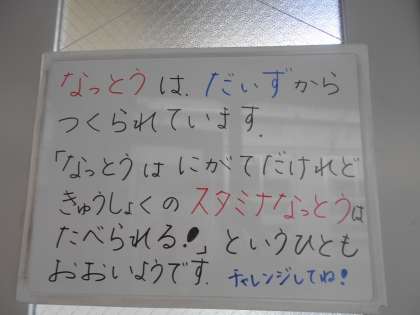 なっとうは、だいずから
つくられています.
「なっとうはにがてだけれど
きゅうしょくのスタミナなっとうは
たべられる!」というひとも
おおいようです. チャレンジしてね!